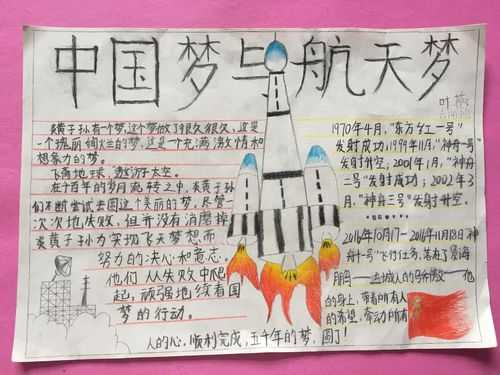 中国梦与航天梦
叶
炎黄子孙有个梦,这个梦做了很久很久,这是
一个瑰丽绚烂的梦,这是一个充满激情和
想象力的梦。
飞离地球,遨游太空。
在千百年的岁月流转之中,炎黄子孙
们不断尝试去圆这个美丽的梦,尽管一
次次地失败,但并没有消磨掉
炎黄子孙为实现飞天梦想而
努力的决心和意志。
他们从失败中爬
起,顽强地续着国
梦的行动。
1970年4月,"东方红一号"
发射成功;1999年11月,"神舟一号"
发射升空;2001年1月,"神舟
二号"发射成功;2002年3
月,"神舟三号"发射升空。
2016年10月17—2016年11月18日"神
舟十一号"飞行任务,落在了景海
鹏 他
的身上,带着所有人
的希望,牵动所有
人的心,顺利完成,五千年的梦,圆了!